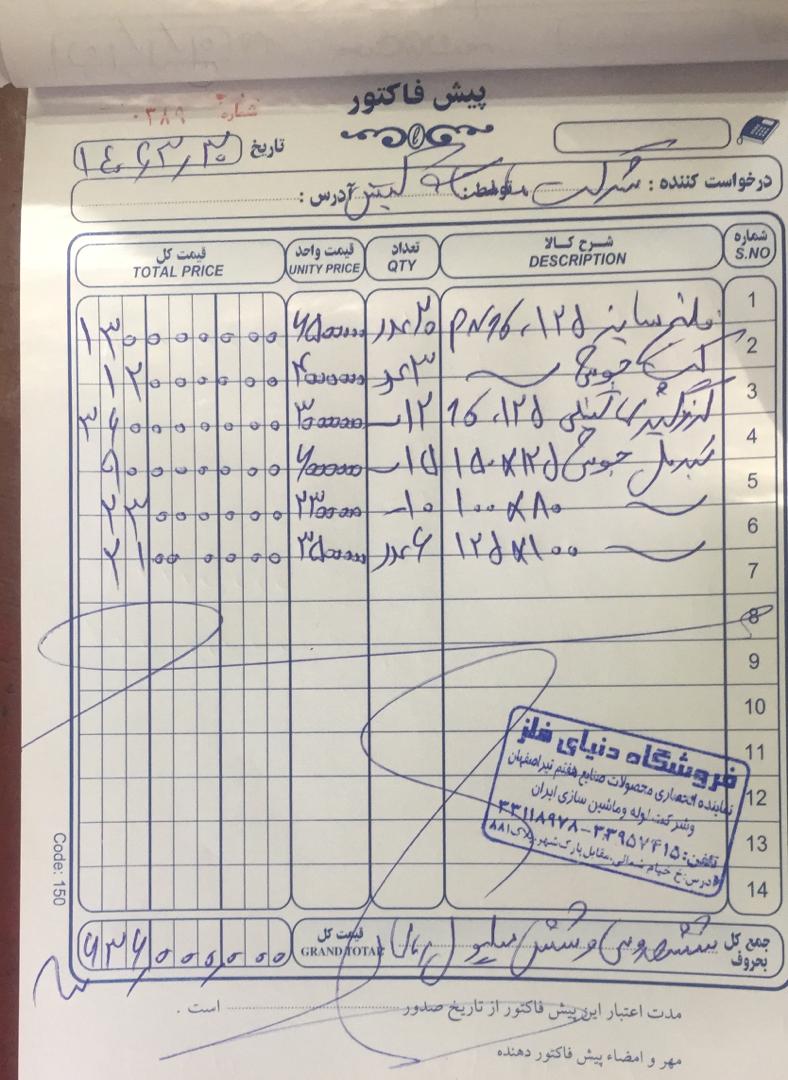 پیش فاکتور
شماره ۰۳۸۹
تاریخ ۱۴۰۳٫۳٫۲۰
درخواست کننده : شرکت توسط: کیش آدرس :
شماره S.NO شرح کالا DESCRIPTION تعداد QTY قیمت واحد UNITY PRICE قیمت کل TOTAL PRICE
1 فلنج سایز ۱۲۵ ، PN16 ۲۰ عدد ۶۵۰۰۰۰۰ ۱۳۰۰۰۰۰۰۰
2 جوشی ۳ عدد ۴۰۰۰۰۰۰ ۱۲۰۰۰۰۰۰
3 ۱۲۵ ، 16 ۱۲ ۳۶۰۰۰۰۰۰۰
4 تبدیل جوشی ۱۲۵×۱۵۰ ۱۵ ۶۰۰۰۰۰۰ ۹۰۰۰۰۰۰۰
5 ۸۰×۱۰۰ ۱۰ ۲۳۰۰۰۰۰ ۲۳۰۰۰۰۰۰
6 ۱۰۰×۱۲۵ ۶ عدد ۳۵۰۰۰۰۰ ۲۱۰۰۰۰۰۰
7
8
9
10
11
12
13
14
فروشگاه دنیای فلز
نماینده انحصاری محصولات صنایع هفتم تیر اصفهان
وشرکت لوله وماشین سازی ایران
تلفن: ۳۳۹۵۷۴۱۵-۳۳۱۱۸۹۷۸
آدرس:خ خیام شمالی،مقابل پارک شهر،پلاک ۸۸۱
Code: 150
جمع کل بحروف ششصدوسی و شش میلیون ریال قیمت کل GRAND TOTAL ۶۳۶,۰۰۰,۰۰۰
مدت اعتبار این پیش فاکتور از تاریخ صدور است .
مهر و امضاء پیش فاکتور دهنده